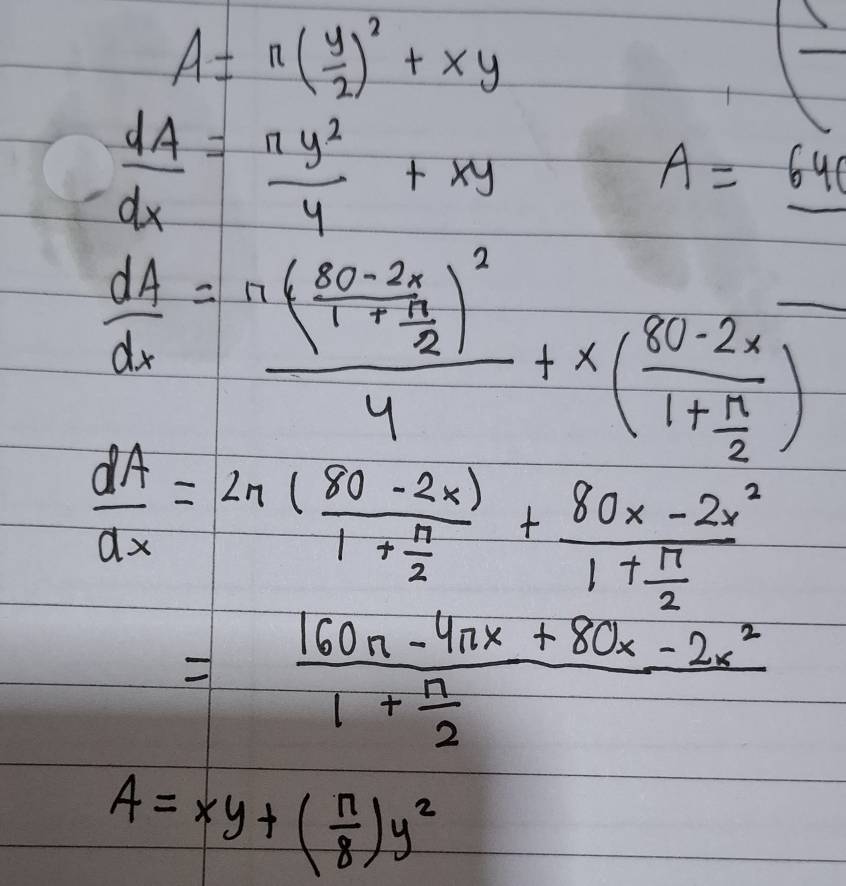 A = π(y/2)² + xy
dA/dx = πy²/4 + xy
A = 640
dA/dx = π((80-2x)/(1 + π/2))²/4 + x((80-2x)/(1+π/2))
dA/dx = 2π (80-2x)/(1 + π/2) + (80x - 2x²)/(1 + π/2)
= (160π - 4πx + 80x - 2x²)/(1 + π/2)
A = xy + (π/8)y²